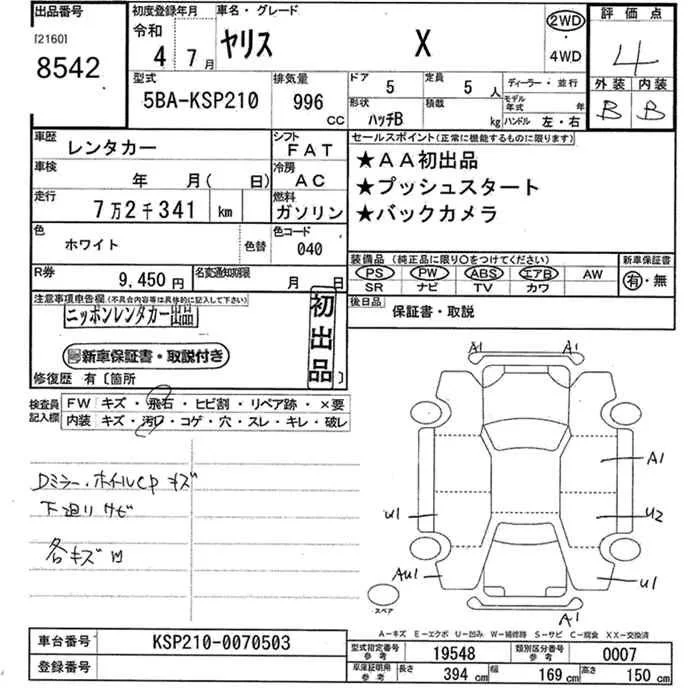 出品番号
[2160]
8542
初度登録年月
令和
4年 7月
車名・グレード
ヤリス X
2WD
・
4WD
評価点
4
外装 内装
B B
型式
5BA-KSP210
排気量
996 CC
ドア 5
定員 5人
形状 ハッチB
積載 kg
ディーラー・並行
モデル年式 年
ハンドル 左・右
車歴
レンタカー
シフト
FAT
車検
年 月( 日)
冷房
AC
走行
7万2千341 km
燃料
ガソリン
色
ホワイト
色替
色コード
040
R券
9,450円
名変通知期限
月 日
セールスポイント(正常に機能するものに限ります)
★AA初出品
★プッシュスタート
★バックカメラ
装備品(純正品に限り〇をつけてください)
PS PW ABS エアB AW
SR ナビ TV カワ
新車保証書
有・無
後日品
保証書・取説
注意事項申告欄(不具合内容等は具体的に記入して下さい)
ニッポンレンタカー出品
新車保証書・取説付き
初出品
修復歴 有〔箇所 〕
検査員記入欄
FW キズ・飛石・ヒビ割・リペア跡・×要
内装 キズ・汚れ・コゲ・穴・スレ・キレ・破レ
Dミラー・ホイルCP キズ
下廻りサビ
各キズ凹
A1 A1
A1
U1 U2
AU1 U1
A1
スペア
A-キズ E-エクボ U-凹み W-補修跡 S-サビ C-腐食 XX-交換済
車台番号
KSP210-0070503
登録番号
型式指定番号 参考
19548
類別区分番号 参考
0007
車庫証明用 参考
長さ 394 cm
幅 169 cm
高さ 150 cm